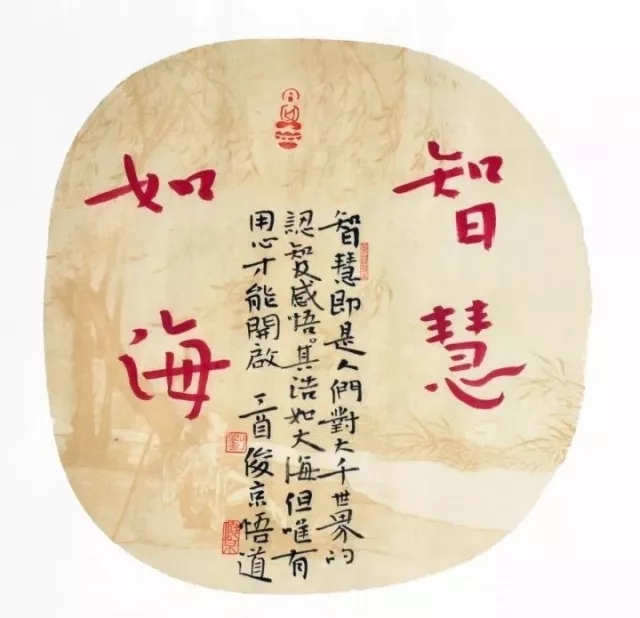 智慧
如海
智慧即是人們對大千世界的
認知及感悟。其浩如大海但唯有
用心才能開啟 丁酉俊京悟道
劉
俊京